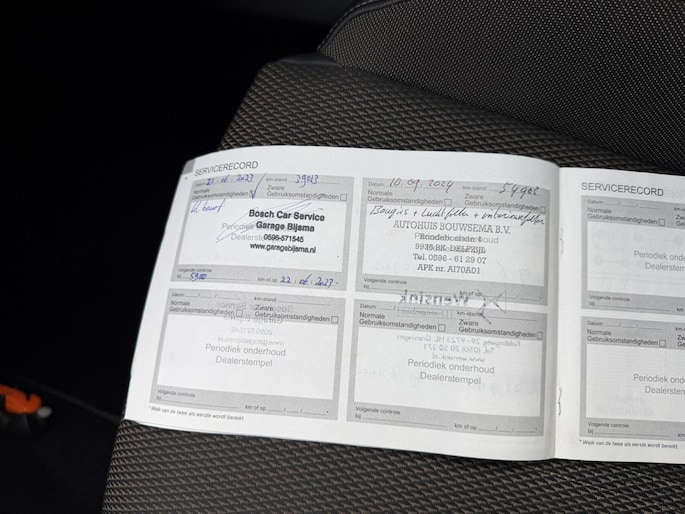 SERVICERECORD
Datum 22.06.2023 km-stand 39013
Normale Gebruiksomstandigheden Zware Gebruiksomstandigheden
kl beurt
Bosch Car Service
Garage Bijsma
Periodiek
0596-571545
www.garagebijsma.nl
Volgende controle
bij km of op 22.06.2023
Datum 10.09.2024 km-stand
Normale Gebruiksomstandigheden Zware Gebruiksomstandigheden
Bougies + Luchtfilter +
AUTOHUIS BOUWSEMA B.V.
9936 BK DELFZIJL
Tel. 0596 - 61 29 07
APK nr. AI70A01
Volgende controle
bij km of op
Datum km-stand
Normale Gebruiksomstandigheden Zware Gebruiksomstandigheden
Periodiek onderhoud
Dealerstempel
Volgende controle
bij km of op
* Welk van de twee als eerste wordt bereikt.
Datum km-stand
Normale Gebruiksomstandigheden Zware Gebruiksomstandigheden
Wensink
Periodiek onderhoud
Dealerstempel
Volgende controle
bij km of op
SERVICERECORD
Datum
Normale
Gebruiksomstandigheden
Periodiek onderh
Dealerstemp
Volgende controle
bij
Datum
Normale
Gebruiksomstandigheden
Periodiek onder
Dealerstemp
Volgende controle
bij
* Welk van de twee als eerste wordt bereikt.